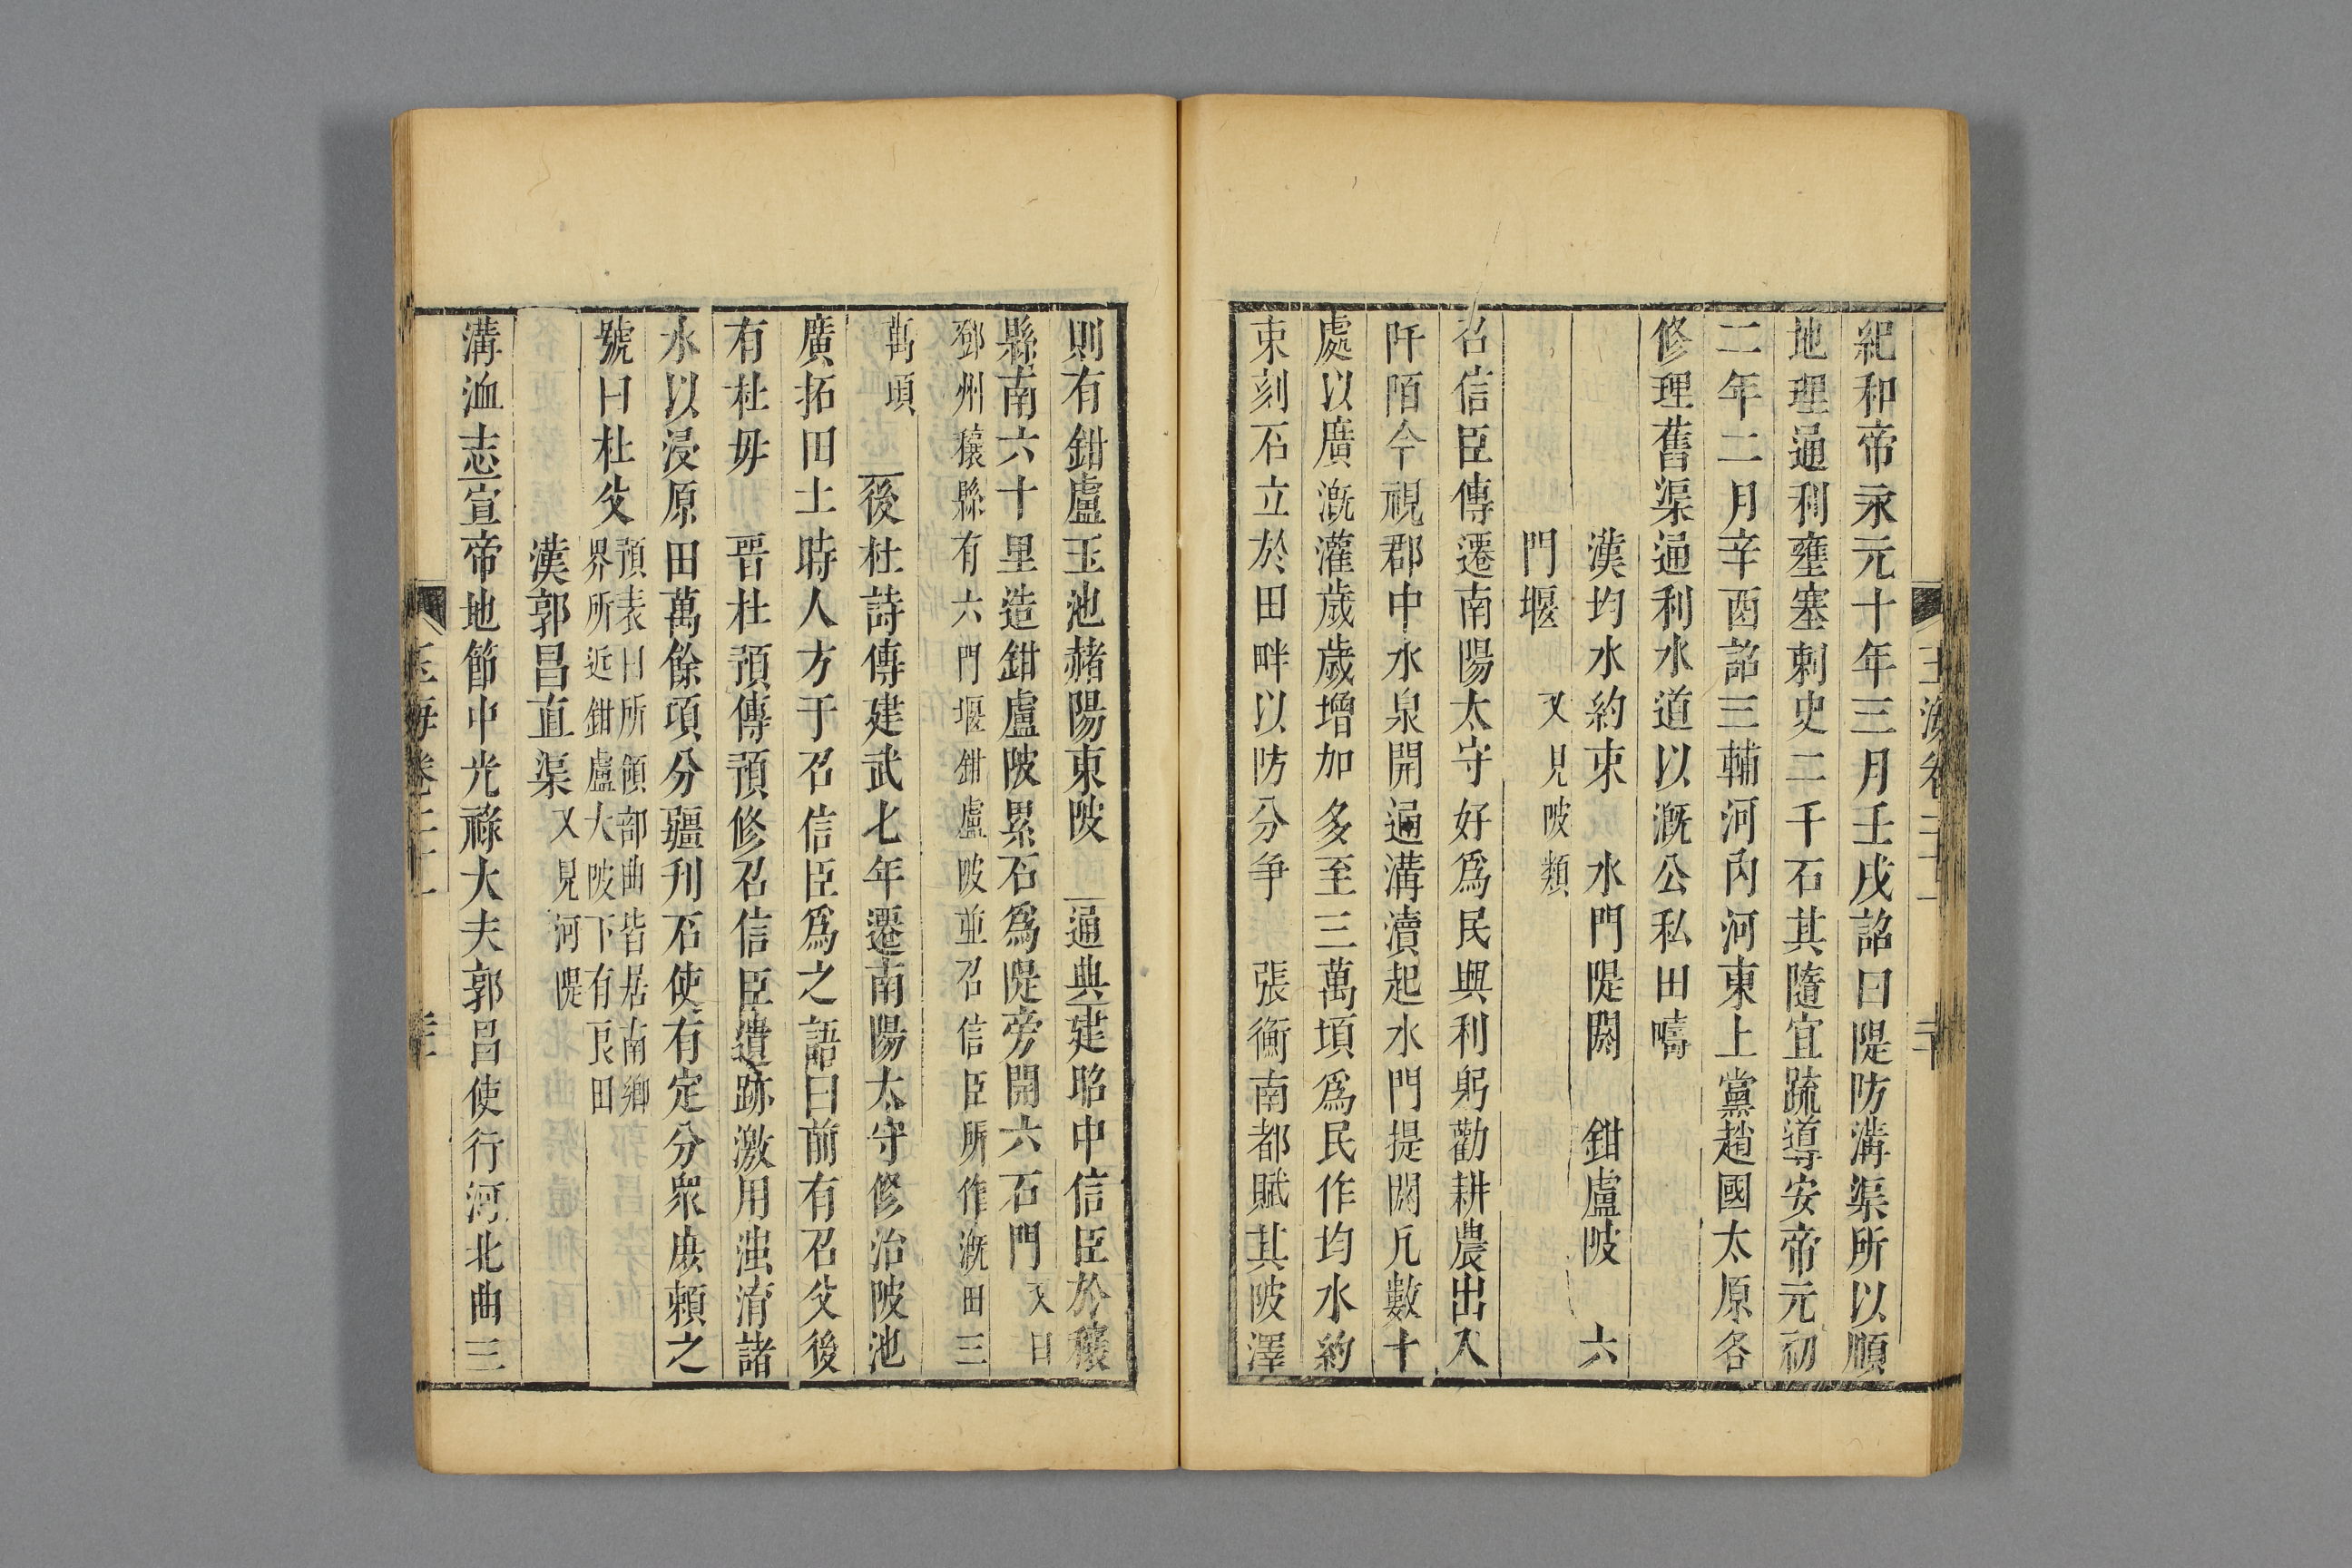 紀和帝永元十年三月壬戌詔曰隄防溝渠所以順
地理通利壅塞刺史二千石其隨宜疏導安帝元初
二年二月辛酉詔三輔河內河東上黨趙國太原各
修理舊渠通利水道以溉公私田疇
漢均水約束 水門隄閼 鉗盧陂 六
門堰 又見陂類
召信臣傳遷南陽太守好爲民興利躬勸耕農出入
阡陌今視郡中水泉開通溝瀆起水門提閼凡數十
處以廣溉灌歲歲增加多至三萬頃爲民作均水約
束刻石立於田畔以防分爭 張衡南都賦其陂澤
則有鉗盧玉池赭陽東陂 通典建昭中信臣於穰
縣南六十里造鉗盧陂累石爲隄旁開六石門又曰
鄧州穰縣有六門堰鉗盧陂並召信臣所作溉田三
萬頃 後杜詩傳建武七年遷南陽太守修治陂池
廣拓田土時人方于召信臣爲之語曰前有召父後
有杜毋 晉杜預傳預修召信臣遺跡激用滍淯諸
水以浸原田萬餘頃分疆刊石使有定分衆庶賴之
號曰杜父
預表曰所領部曲皆居南鄉
界所近鉗盧大陂下有良田
漢郭昌直渠 又見河隄
溝洫志宣帝地節中光祿大夫郭昌使行河北曲三